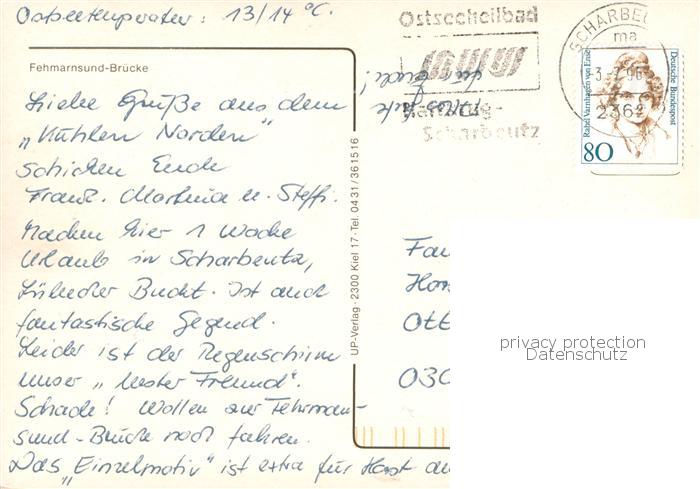 Ostseetemperatur: 13/14 °C.
Fehmarnsund-Brücke
Liebe Grüße aus dem
„Kühlen Norden"
schicken Euch
Franz. Martina u. Steffi.
Machen hier 1 Woche
Urlaub in Scharbeutz,
Lübecker Bucht. Ist auch
fantastische Gegend.
Leider ist der Regenschirm
unser „bester Freund".
Schade! Wollen zur Fehmarn-
sund-Brücke noch fahren.
Das „Einzelmotiv" ist extra für Horst
UP-Verlag · 2300 Kiel 17 · Tel. 0431/361516
Ostseeheilbad
Haffkrug-
Scharbeutz
SCHARBEU
ma
2362
Rahel Varnhagen von Ense
Deutsche Bundespost
80
Fam
Hor
Ott
030
privacy protection
Datenschutz